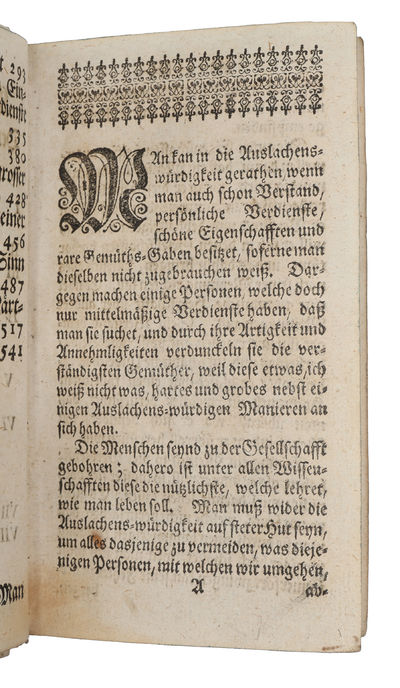 293
Ein-
dienste
335
380
grosser
428
einer
456
Sinn
487
517
541
Man
MAn kan in die Auslachens-
würdigkeit gerathen, wenn
man auch schon Verstand,
persönliche Verdienste,
schöne Eigenschafften und
rare Gemüths-Gaben besitzet, soferne man
dieselben nicht zugebrauchen weiß. Dar-
gegen machen einige Personen, welche doch
nur mittelmäßige Verdienste haben, daß
man sie suchet, und durch ihre Artigkeit und
Annehmligkeiten verdunckeln sie die ver-
ständigsten Gemüther, weil diese etwas, ich
weiß nicht was, hartes und grobes nebst ei-
nigen Auslachens-würdigen Manieren an
sich haben.
Die Menschen seynd zu der Gesellschafft
gebohren; dahero ist unter allen Wissen-
schafften diese die nützlichste, welche lehret,
wie man leben soll. Man muß wider die
Auslachens-würdigkeit auf steter Hut seyn,
um alles dasjenige zu vermeiden, was dieje-
nigen Personen, mit welchen wir umgehen,
A
ab-